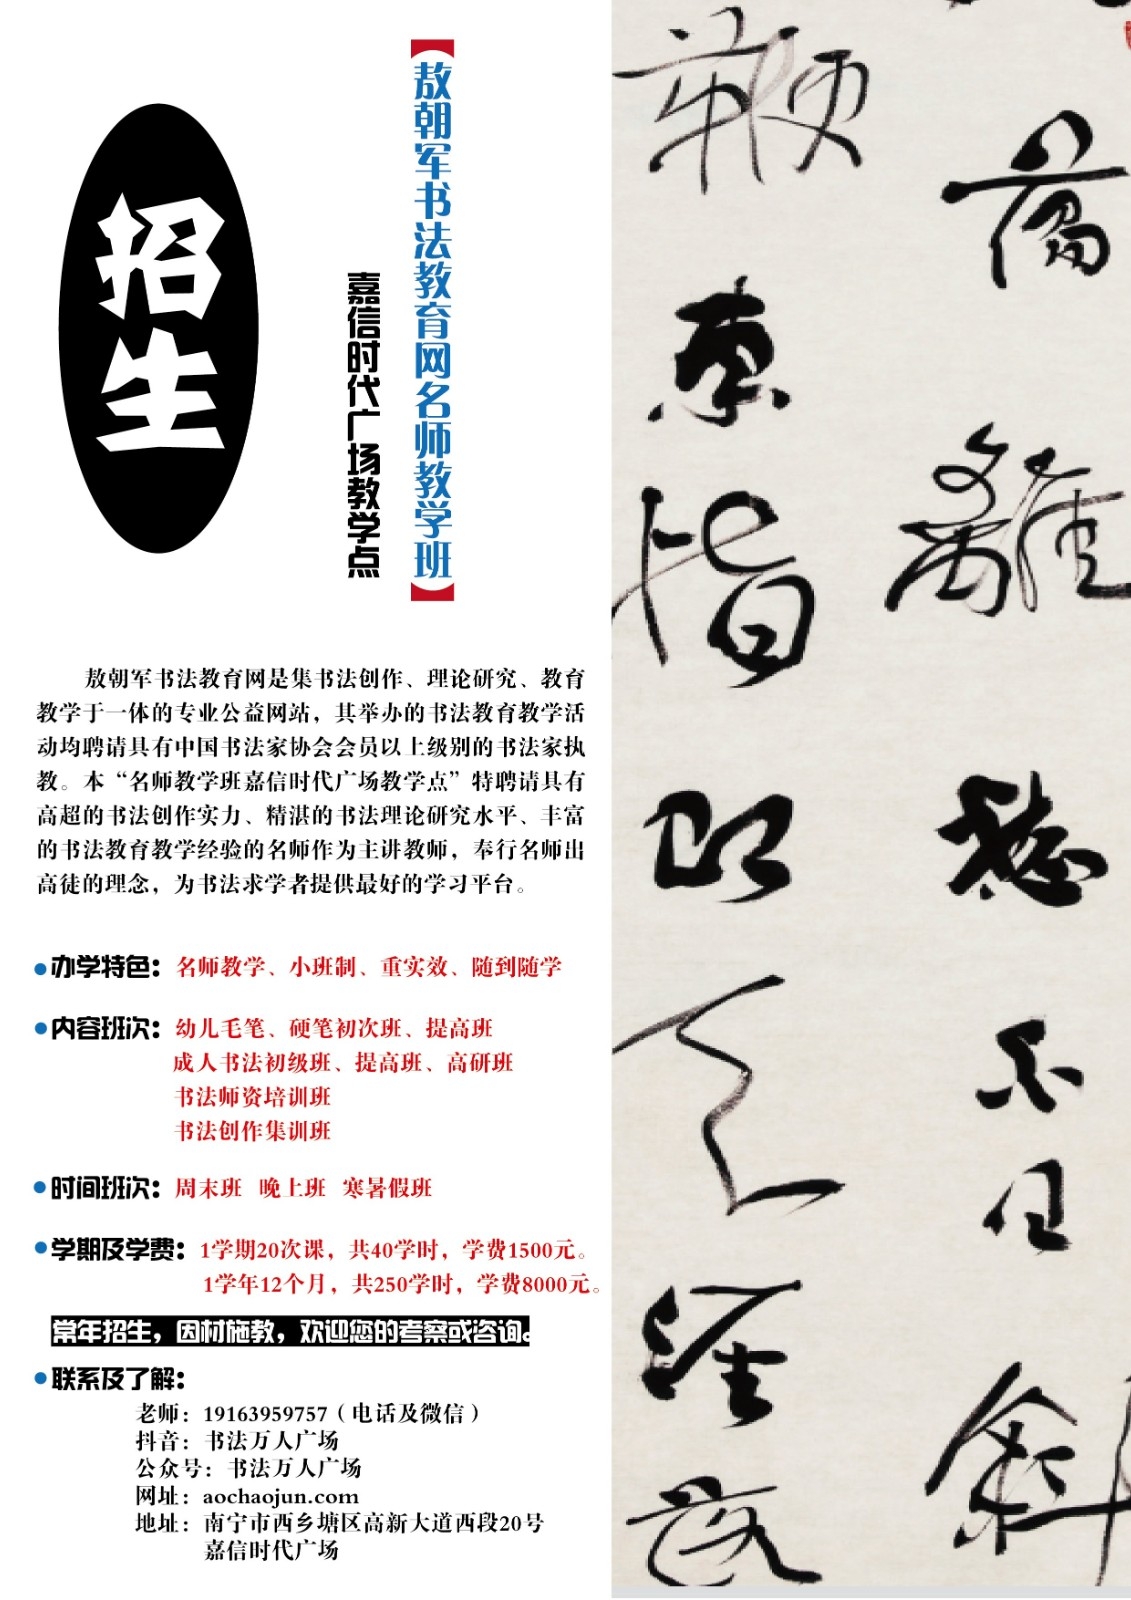 招生
【敖朝军书法教育网名师教学班】
嘉信时代广场教学点
敖朝军书法教育网是集书法创作、理论研究、教育
教学于一体的专业公益网站，其举办的书法教育教学活
动均聘请具有中国书法家协会会员以上级别的书法家执
教。本“名师教学班嘉信时代广场教学点”特聘请具有
高超的书法创作实力、精湛的书法理论研究水平、丰富
的书法教育教学经验的名师作为主讲教师，奉行名师出
高徒的理念，为书法求学者提供最好的学习平台。
●办学特色：名师教学、小班制、重实效、随到随学
●内容班次：幼儿毛笔、硬笔初次班、提高班
成人书法初级班、提高班、高研班
书法师资培训班
书法创作集训班
●时间班次：周末班 晚上班 寒暑假班
●学期及学费：1学期20次课，共40学时，学费1500元。
1学年12个月，共250学时，学费8000元。
常年招生，因材施教，欢迎您的考察或咨询。
●联系及了解：
老师：19163959757（电话及微信）
抖音：书法万人广场
公众号：书法万人广场
网址：aochaojun.com
地址：南宁市西乡塘区高新大道西段20号
嘉信时代广场
離愁白日斜
鞭東指即天涯落